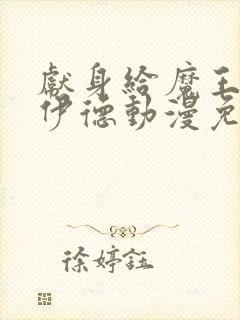 獻身給魔王
伊德動漫免
徐婷鈺